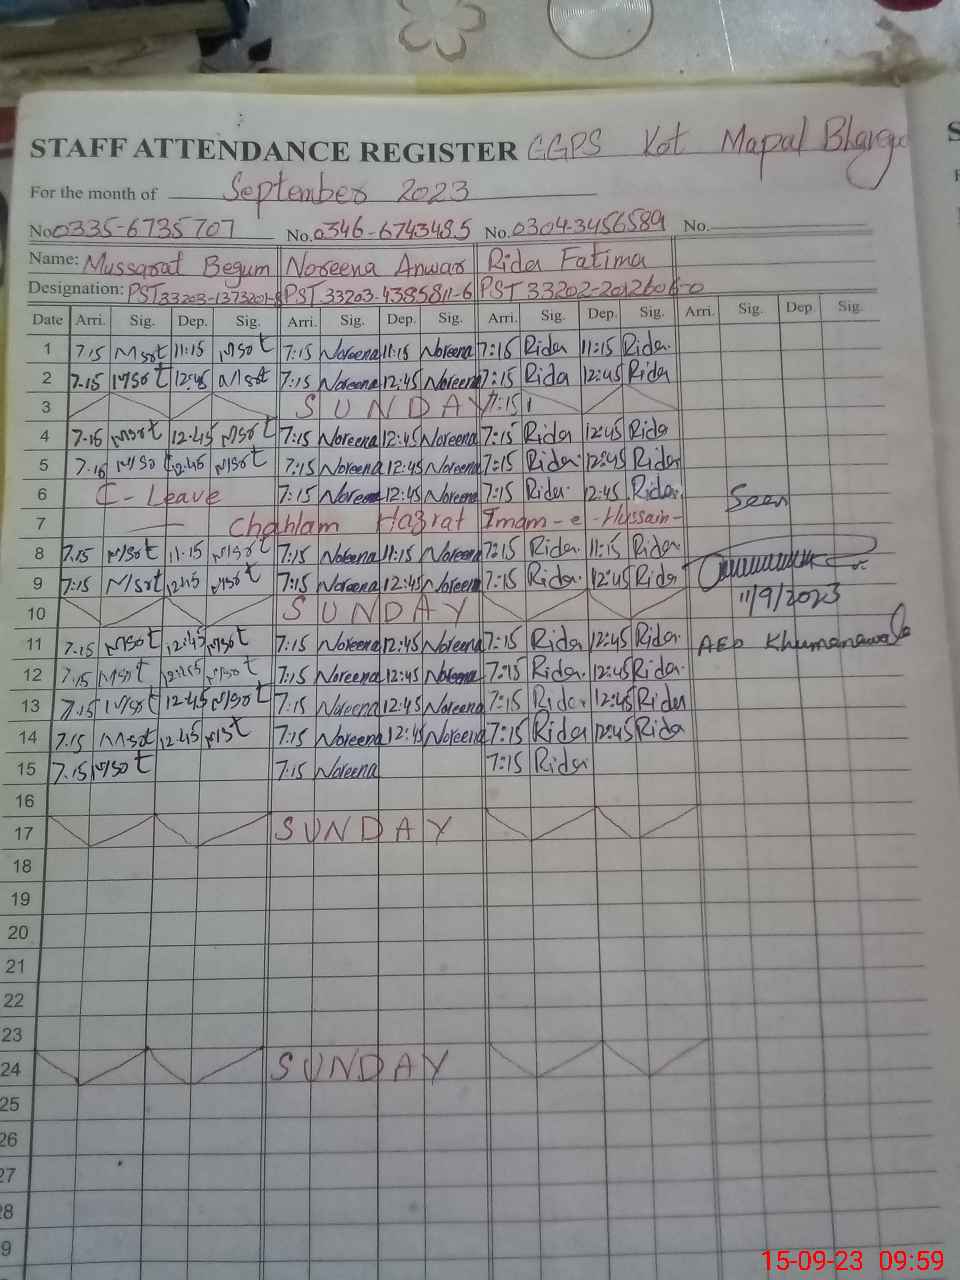 STAFF ATTENDANCE REGISTER GGPS Kot Mapal
For the month of September 2023
No 0335-6735707 No. 0346-6743485 No. 0304-3456589 No.
Name: Mussarat Begum Noreena Anwar Rida Fatima
Designation: PST 33203-1373201-8 PST 33203-4385811-6 PST 33202-2012606-0
Date Arri. Sig. Dep. Sig. Arri. Sig. Dep. Sig. Arri. Sig. Dep. Sig. Arri. Sig. Dep. Sig.
1 7.15 Msrt 11:15 Msrt 7:15 Noreena 11:15 Noreena 7:15 Rida 11:15 Rida.
2 7.15 Msrt 12:45 Msrt 7:15 Noreena 12:45 Noreena 7:15 Rida 12:45 Rida
3 SUNDAY 7:15
4 7.15 Msrt 12.45 Msrt 7:15 Noreena 12:45 Noreena 7:15 Rida 12:45 Rida
5 7.15 Msrt 12.45 Msrt 7:15 Noreena 12:45 Noreena 7:15 Rida. 12:45 Rida
6 C-Leave 7:15 Noreena 12:45 Noreena 7:15 Rida. 12:45 Rida. Seen
7 Chahlam Hazrat Imam-e-Hussain-
8 7.15 Msrt 11.15 Msrt 7:15 Noreena 11:15 Noreena 7:15 Rida. 11:15 Rida.
9 7:15 Msrt 12:45 Msrt 7:15 Noreena 12:45 Noreena 7:15 Rida. 12:45 Rida
10 SUNDAY 11/9/2023
11 7.15 Msrt 12:45 Msrt 7:15 Noreena 12:45 Noreena 7:15 Rida 12:45 Rida. AEO Khumanawala
12 7.15 Msrt 12:45 Msrt 7:15 Noreena 12:45 Noreena 7:15 Rida. 12:45 Rida.
13 7.15 Msrt 12.45 Msrt 7:15 Noreena 12:45 Noreena 7:15 Rida. 12:45 Rida
14 7.15 Msrt 12.45 Msrt 7:15 Noreena 12:45 Noreena 7:15 Rida 12:45 Rida
15 7.15 Msrt 7:15 Noreena 7:15 Rida
16
17 SUNDAY
18
19
20
21
22
23
24 SUNDAY
25
26
27
28
9
15-09-23 09:59